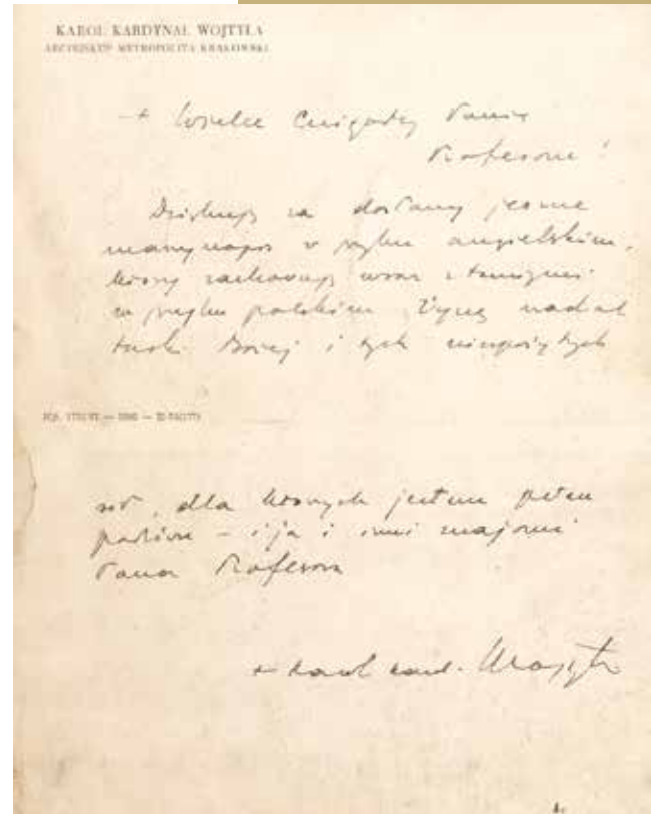 KAROL KARDYNAŁ WOJTYŁA
ARCYBISKUP METROPOLITA KRAKOWSKI
+ Wielce Czcigodny Panie
Profesorze!
Dziękuję za dosłany jeszcze
maszynopis w języku angielskim,
który zachowuję wraz z tamtymi
w języku polskim. Życzę nadal
łaski Bożej i tych niespożytych
sił, dla których jestem pełen
podziwu – i ja i inni znajomi
Pana Profesora
+ Karol kard. Wojtyła